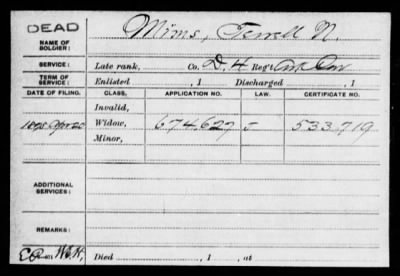 DEAD
NAME OF SOLDIER: Mims, Terrell N.
SERVICE: Late rank, Co. D. 4 Reg't Ark Cav
TERM OF SERVICE: Enlisted , 1 Discharged , 1
DATE OF FILING. CLASS. APPLICATION NO. LAW. CERTIFICATE NO.
Invalid,
1898 Apr 20 Widow, 674,627 533,719
Minor,
ADDITIONAL SERVICES:
REMARKS:
Died , 1 , at